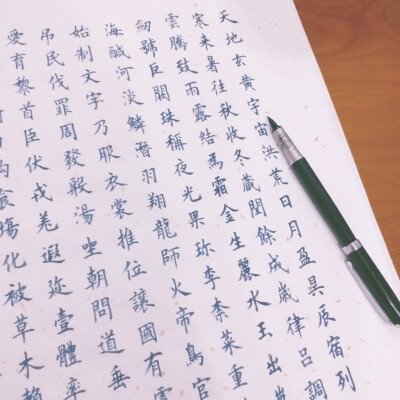 天地玄黄宇宙洪荒日月盈昃辰宿列
寒来暑往秋收冬藏閏餘成歲律呂調
雲騰致雨露結為霜金生麗水玉出
劒號巨闕珠稱夜光果珎李柰菜重
海醎河淡鱗潛羽翔龍師火帝鳥官
始制文字乃服衣裳推位讓國有
吊民伐罪周發殷湯坐朝問道垂
愛育黎首臣伏戎羌遐迩壹體率
食場化被草木賴